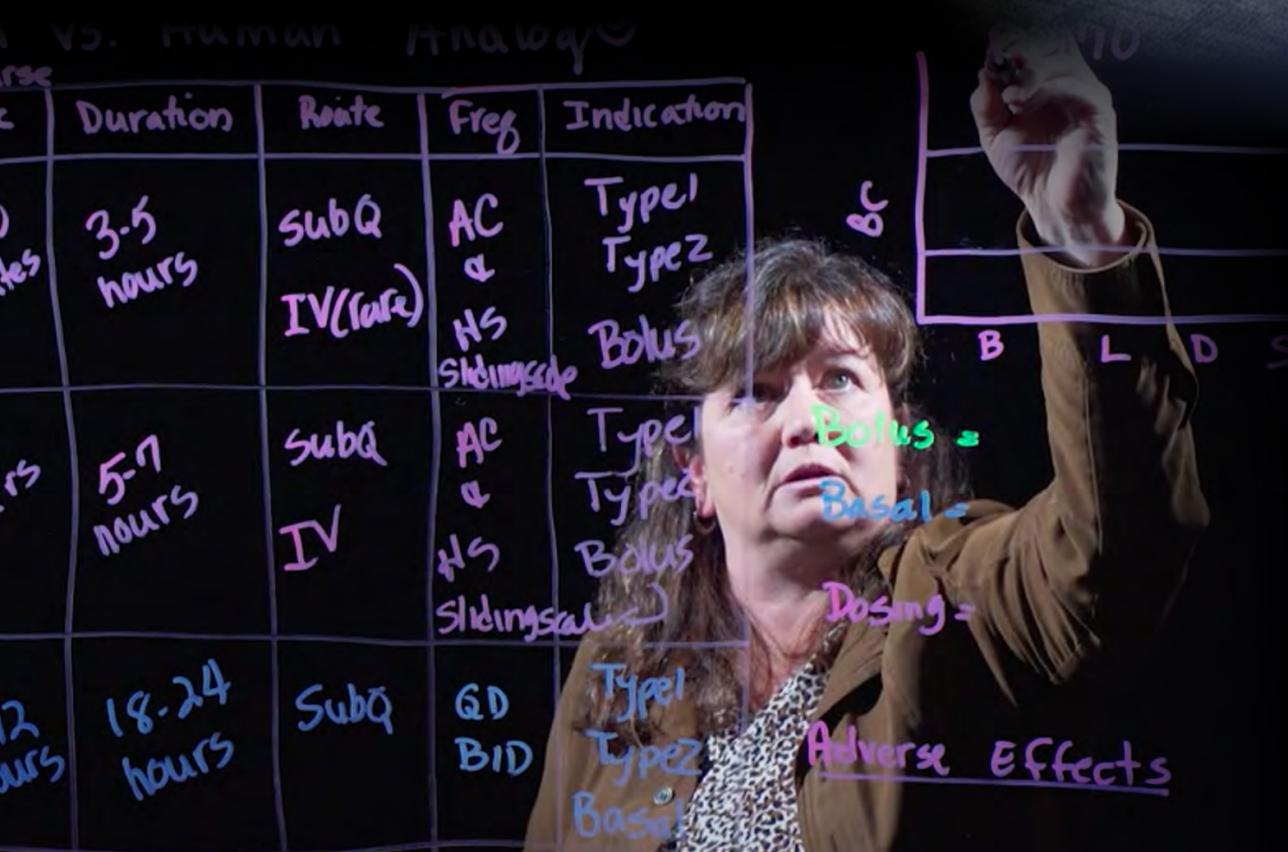 vs. Human Analog
Duration Route Freq Indication
3-5 hours
SubQ
IV(rare)
AC
&
HS
Slidingscale
Type1
Type2
Bolus
5-7 hours
SubQ
IV
AC
&
HS
Slidingscale
Type1
Type2
Bolus
12
18-24 hours
SubQ
QD
BID
Type1
Type2
Basal
B L D
Bolus =
Basal =
Dosing=
Adverse Effects